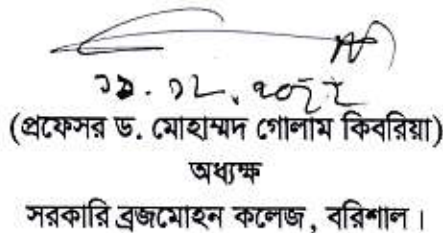 (প্রফেসর ড. মোহাম্মদ গোলাম কিবরিয়া)
অধ্যক্ষ
সরকারি ব্রজমোহন কলেজ, বরিশাল।